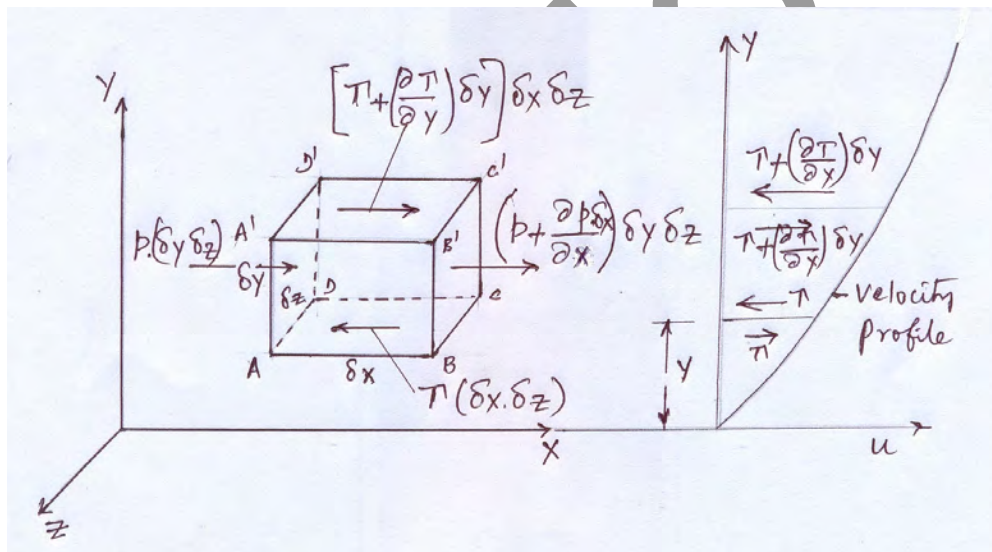 [τ+(∂τ/∂y)δy]δx δz
Y
D'
C'
p.(δy δz)
A'
B'
(p+∂p/∂x.δx)δy δz
δy
δz
D
C
A
δx
B
τ(δx.δz)
X
Z
Y
τ+(∂τ/∂x)δy
τ+(∂τ/∂x)δy
τ
velocity
profile
τ
y
u